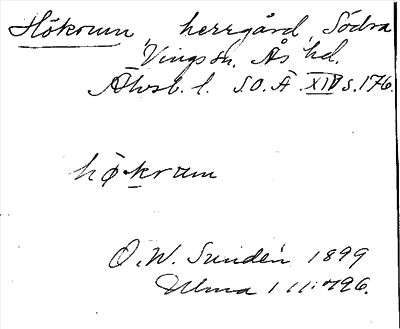 Hökrum, herrgård, Södra
Vings sn. Ås hd.
Älvsb. l. S.O.Ä. XIV s.176.
hö̀krum
O.W. Sundén 1899
Ulma 111:796.